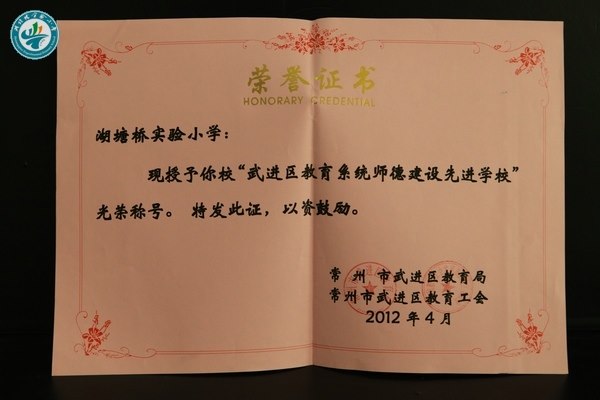 荣誉证书
HONORARY CREDENTIAL
湖塘桥实验小学:
现授予你校“武进区教育系统师德建设先进学校”
光荣称号。 特发此证，以资鼓励。
常 州 市武进区教育局
常州市武进区教育工会
2012 年 4 月